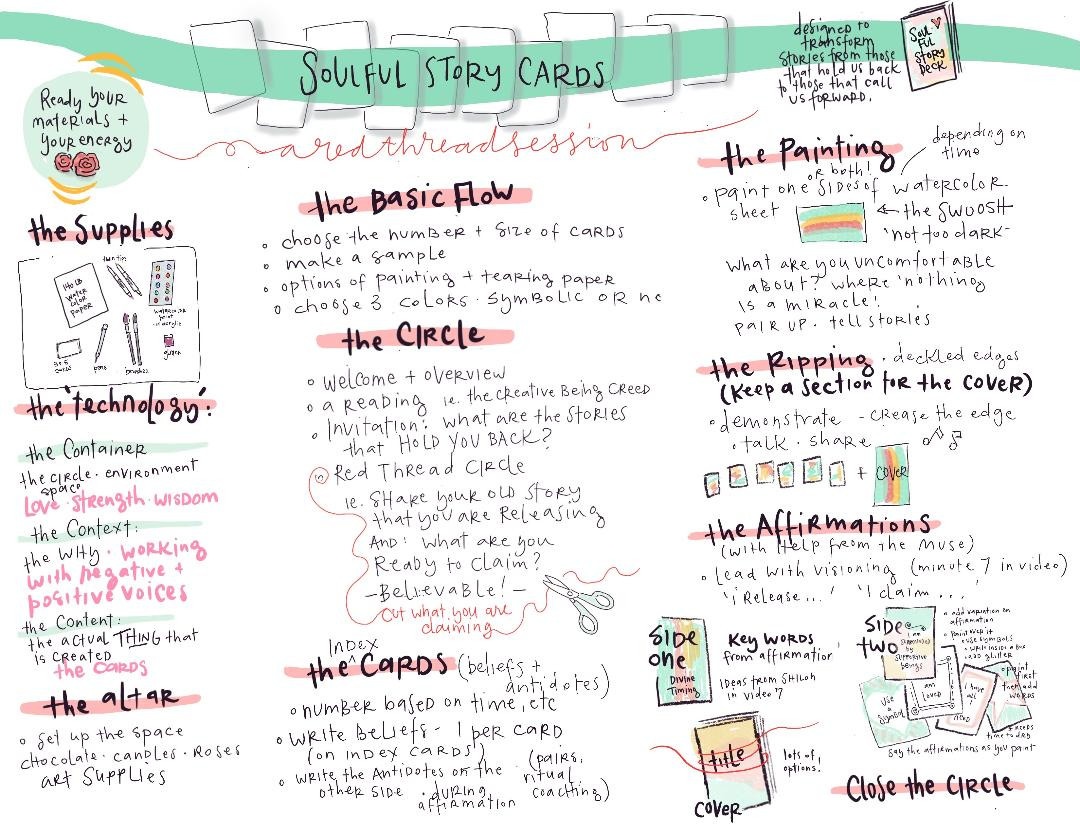 SOULFUL STORY CARDS
a red thread session
designed to
transform
stories from those
that hold us back
to those that call
us forward.
SOUL
FUL
STORY
DECK
Ready your
materials +
your energy
the Supplies
HOLD
WATER
COLOR
PAPER
pens
brushes
glitter
the "technology":
the Container
the circle · environment
space
Love · strength · wisdom
the Context:
the WHY · working
with negative +
positive voices
the Content:
the actual THING that
is created
the CARDS
the altar
set up the space
chocolate · candles · Roses
art Supplies
the Basic Flow
choose the number + size of cards
make a sample
options of painting + tearing paper
choose 3 colors · symbolic or no
the CIRcle
welcome + overview
a READING ie. the Creative Being Creed
Invitation: what are the stories
that HOLD YOU BACK?
Red Thread Circle
ie. Share your old story
that you are Releasing
AND: what are you
Ready to claim?
- Believable! -
Cut what you are
claiming
INDEX
the CARDS (beliefs +
antidotes)
number based on time, etc
write Beliefs - 1 per card
(on index cards)
write the Antidotes on the
other side · during
affirmation
(pairs,
ritual,
coaching)
the Painting
depending on
time
or both!
paint one sides of watercolor
sheet
← the SWOOSH
"not too dark"
what are you uncomfortable
about? where "nothing
is a miracle!
pair up · tell stories
the Ripping · deckled edges
(Keep a section for the cover)
demonstrate - crease the edge
talk · share
+ COVER
the Affirmations
(with help from the Muse)
Lead with visioning (minute 7 in video)
"i Release..." "I claim...
SIDE
one
Divine
Timing
Key words
from affirmation
Ideas from SHILOH
in video 7
title
COVER
lots of
options!
SIDE
two
I am
supported
by
supportive
beings
add variation on
affirmation
paint web it
use symbols
write inside a box
add glitter
paint
first
then add
words
use
a
symbol
I am
LOVED
I have
all I
need
needs
time to dry
say the affirmations as you paint
Close the CIRcle